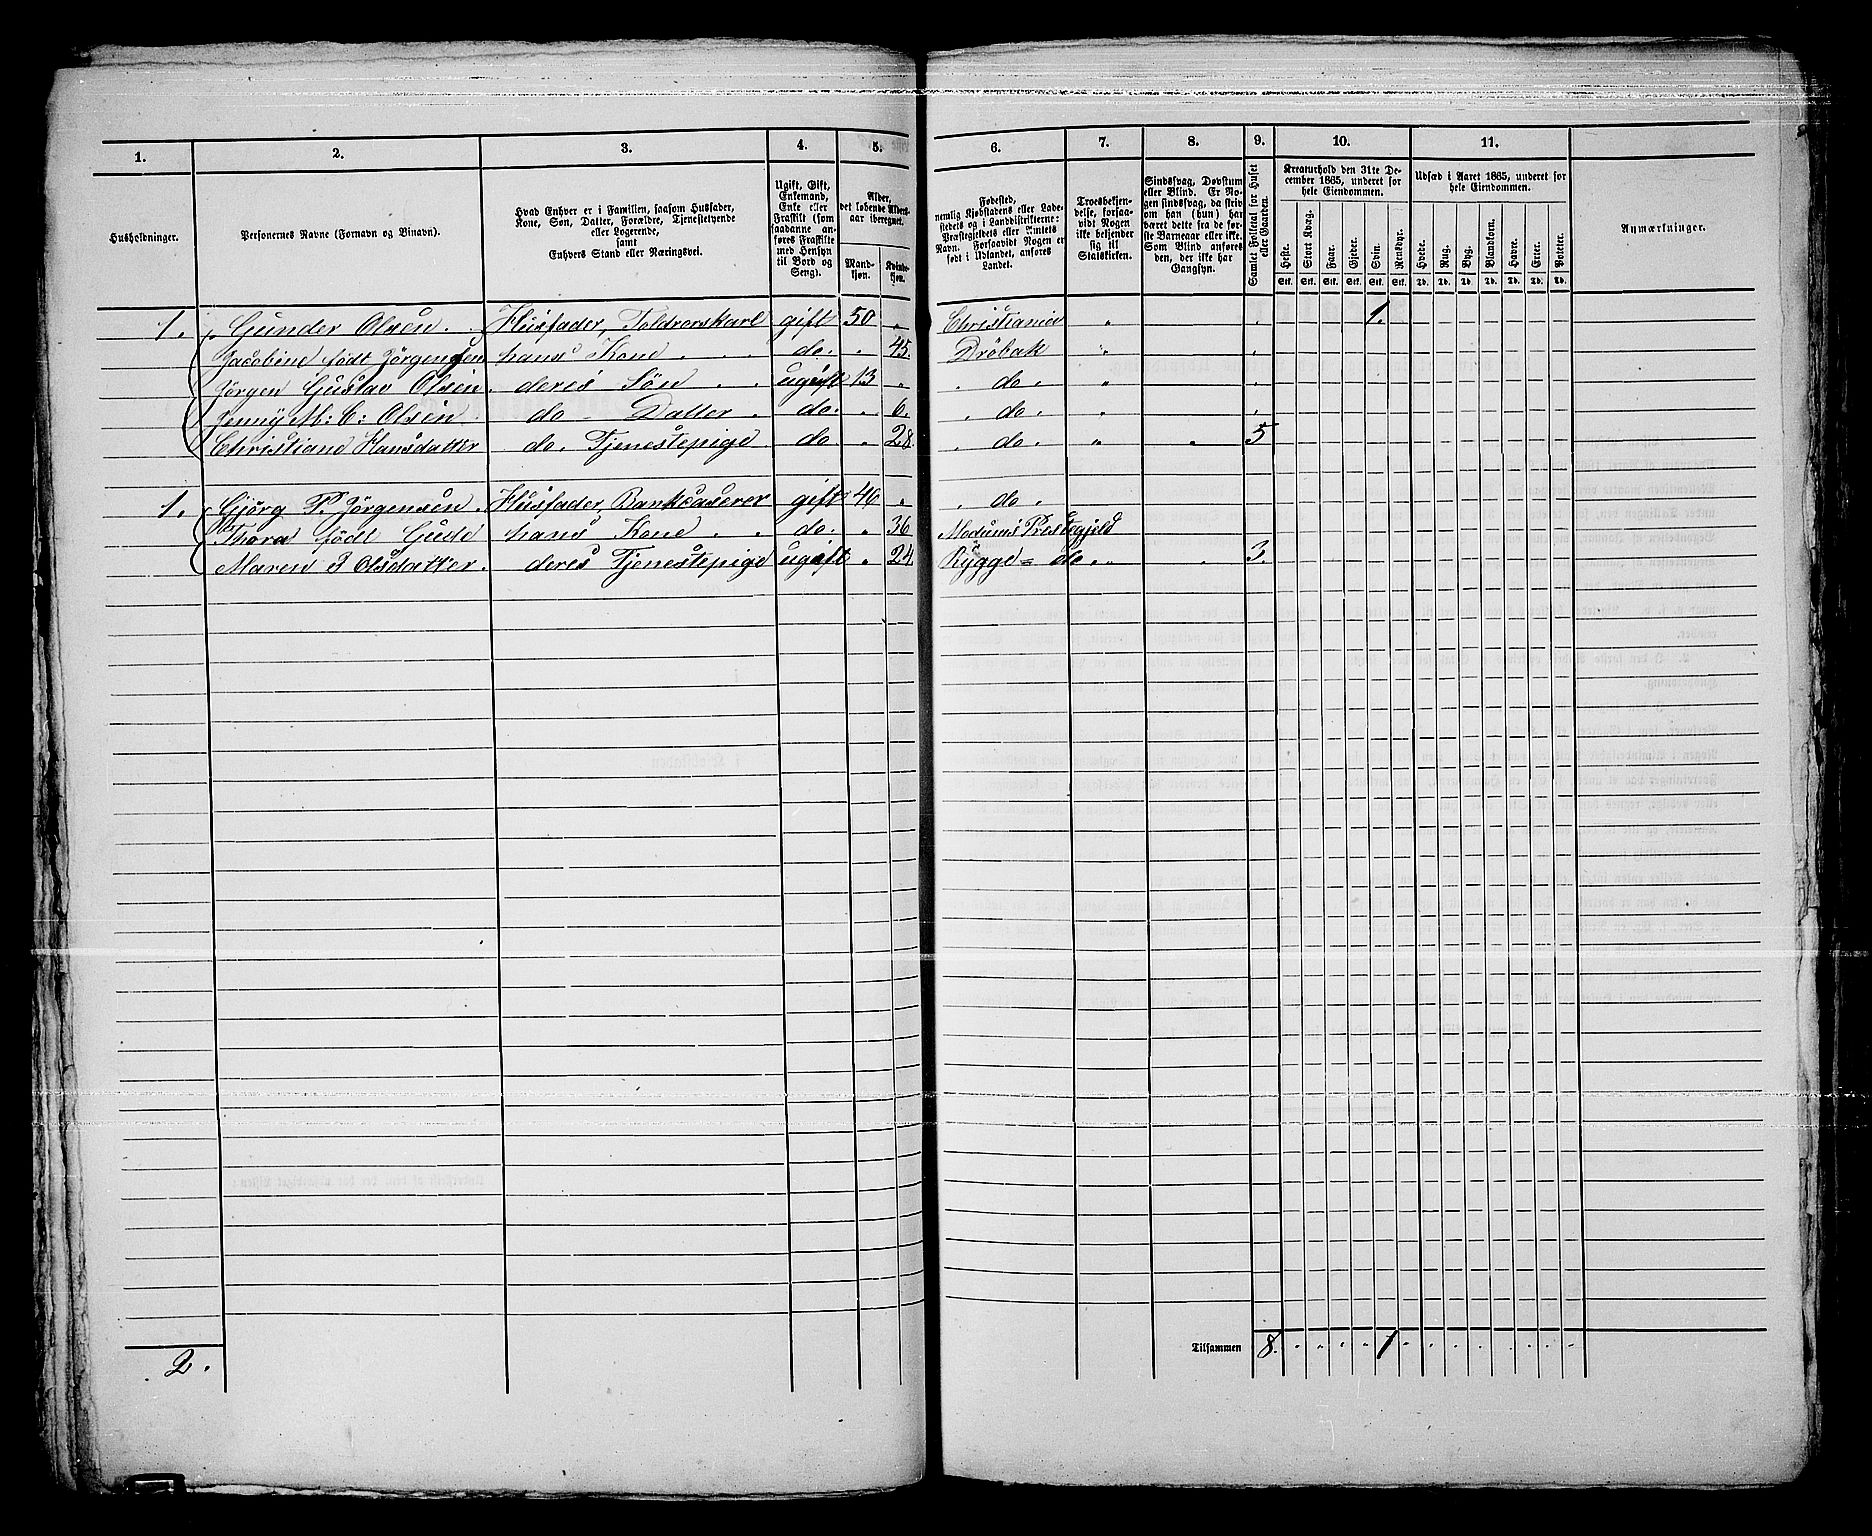 1. 2. 3. 4. 5. 6. 7. 8. 9. 10. 11.
Husholdninger.
Personernes Navne (Fornavn og Binavn).
Hvad Enhver er i Familien, saasom Husfader,
Kone, Søn, Datter, Forældre, Tjenestetyende
eller Logerende,
samt
Enhvers Stand eller Næringsvei.
Ugift, Gift,
Enkemand,
Enke eller
Fraskilt (som
saadanne an-
føres Fraskilte
med Hensyn
til Bord og
Seng).
Alder,
det løbende Alders-
aar iberegnet.
Mand-
kjøn.
Kvinde-
kjøn.
Fødested,
nemlig Kjøbstadens eller Lade-
stedets og i Landdistrikterne:
Præstegjeldets eller Amtets
Navn. Forsaavidt Nogen er
født i Udlandet, anføres
Landet.
Troesbekjen-
delse, forsaa-
vidt Nogen
ikke bekjender
sig til
Statskirken.
Sindssvag, Døvstum
eller Blind. Er No-
gen sindssvag, da skriv
om han (hun) har
været dette fra de før-
ste Barneaar eller ikke.
Som Blind anføres
den, der ikke har
Gangsyn.
Samlet Folketal for Huset
eller Gaarden.
Kreaturhold den 31te De-
cember 1865, underet for
hele Eiendommen.
Heste. Stort Kvæg. Faar. Gjeder. Svin. Rensdyr.
Stk. Stk. Stk. Stk. Stk. Stk.
Udsæd i Aaret 1865, underet for
hele Eiendommen.
Hvede. Rug. Byg. Blandkorn. Havre. Erter. Poteter.
Td. Td. Td. Td. Td. Td. Td.
Anmærkninger.
1. Gunder Olsen. Husfader, Toldrorskarl gift 50 " Christiania " 1.
Jacobine født Jörgensen hans Kone do. " 45. Dröbak "
Jörgen Gustav Olsen. deres Søn ugift 13 " do. "
Jenny M: C: Olsen do Datter do. " 6. do. "
Christiane Hansdatter do. Tjenestepige do " 28. do. " " 5
1. Gjörg P. Jörgensen. Husfader, Bankcaserer gift 46 " do "
Thora født Gude hans Kone do. " 36 Modums Prestegjeld
Maren J Olsdatter. deres Tjenestepige ugift " 24. Rygge = do " 3.
2. Tilsammen 8. 1